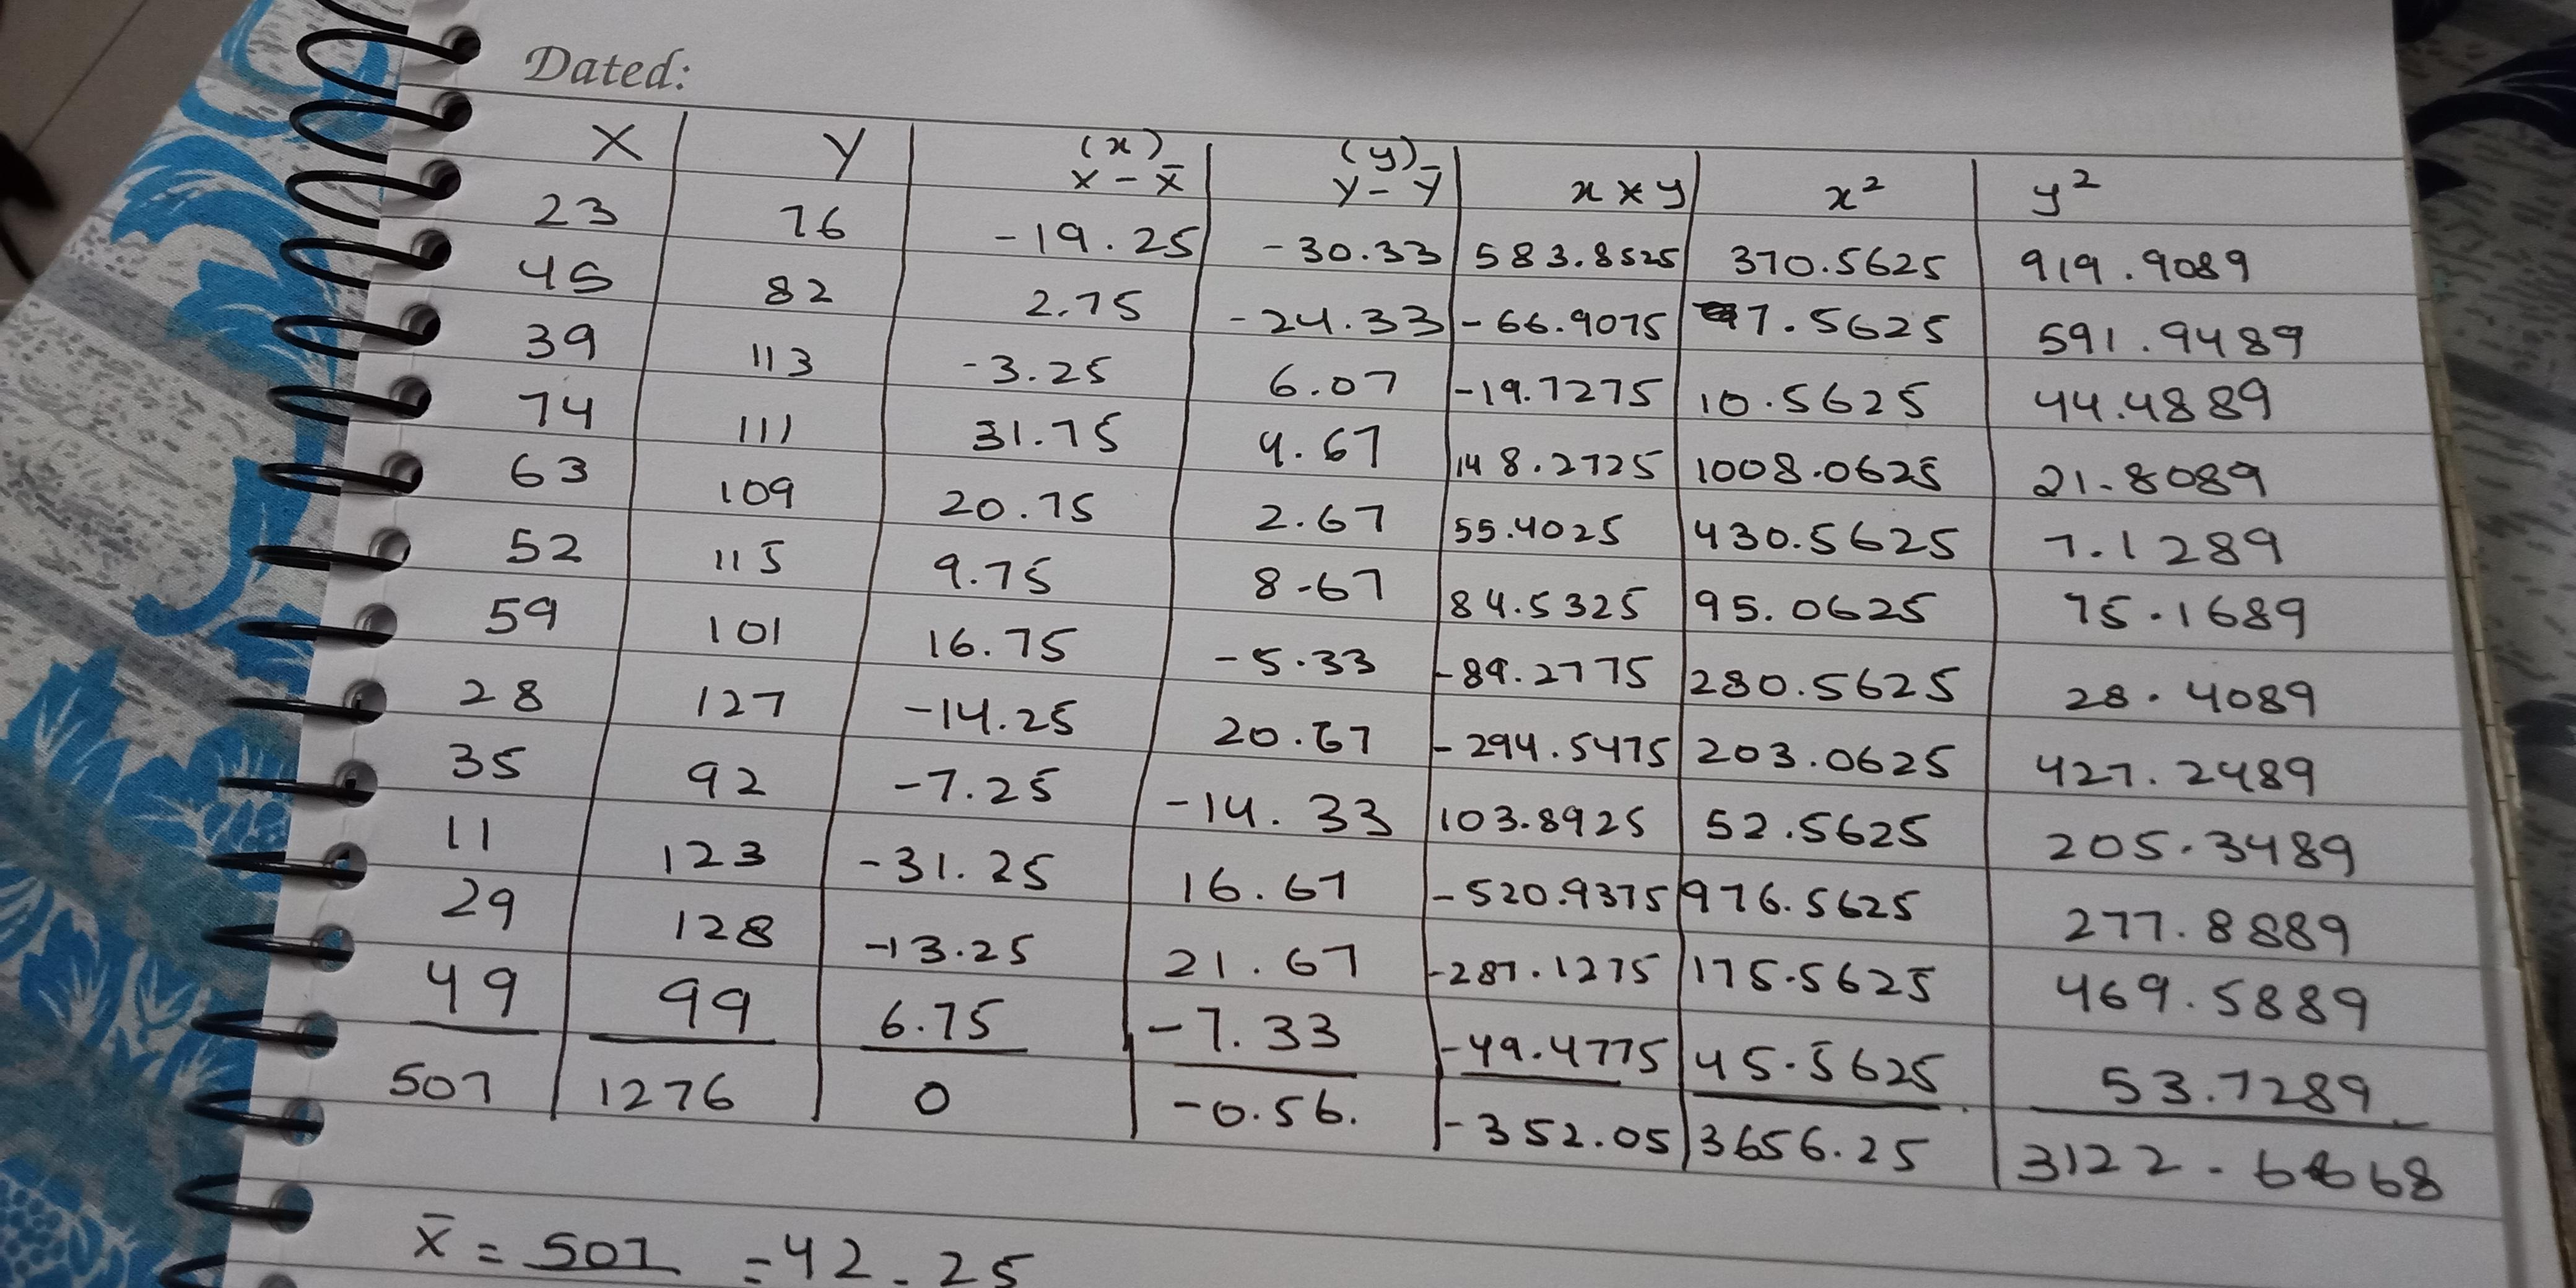 Dated:
X Y (x) X - X̄ (y) Y - Ȳ x × y x² y²
23 76 -19.25 -30.33 583.8525 370.5625 919.9089
45 82 2.75 -24.33 -66.9075 7.5625 591.9489
39 113 -3.25 6.07 -19.7275 10.5625 44.4889
74 111 31.75 4.67 148.2725 1008.0625 21.8089
63 109 20.75 2.67 55.4025 430.5625 7.1289
52 115 9.75 8.67 84.5325 95.0625 75.1689
59 101 16.75 -5.33 -89.2775 280.5625 28.4089
28 127 -14.25 20.67 -294.5475 203.0625 427.2489
35 92 -7.25 -14.33 103.8925 52.5625 205.3489
11 123 -31.25 16.67 -520.9375 976.5625 277.8889
29 128 -13.25 21.67 -287.1275 175.5625 469.5889
49 99 6.75 -7.33 -49.4775 45.5625 53.7289
507 1276 0 -0.56. -352.05 3656.25 3122.6668
X̄ = 507 = 42.25